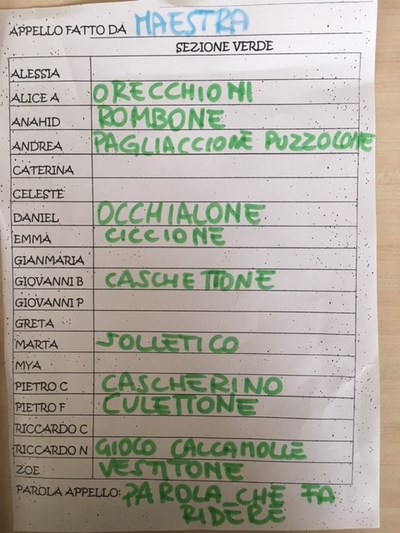 APPELLO FATTO DA MAESTRA
SEZIONE VERDE
ALESSIA
ALICE A ORECCHIONI
ANAHID ROMBONE
ANDREA PAGLIACCIONE PUZZOLONE
CATERINA
CELESTE
DANIEL OCCHIALONE
EMMA CICCIONE
GIANMARIA
GIOVANNI B CASCHETTONE
GIOVANNI P
GRETA
MARTA SOLLETICO
MYA
PIETRO C CASCHERINO
PIETRO F CULETTONE
RICCARDO C
RICCARDO N GIOCO CACCAMOLLE
ZOE VESTITONE
PAROLA APPELLO: PAROLA CHE FA
RIDERE